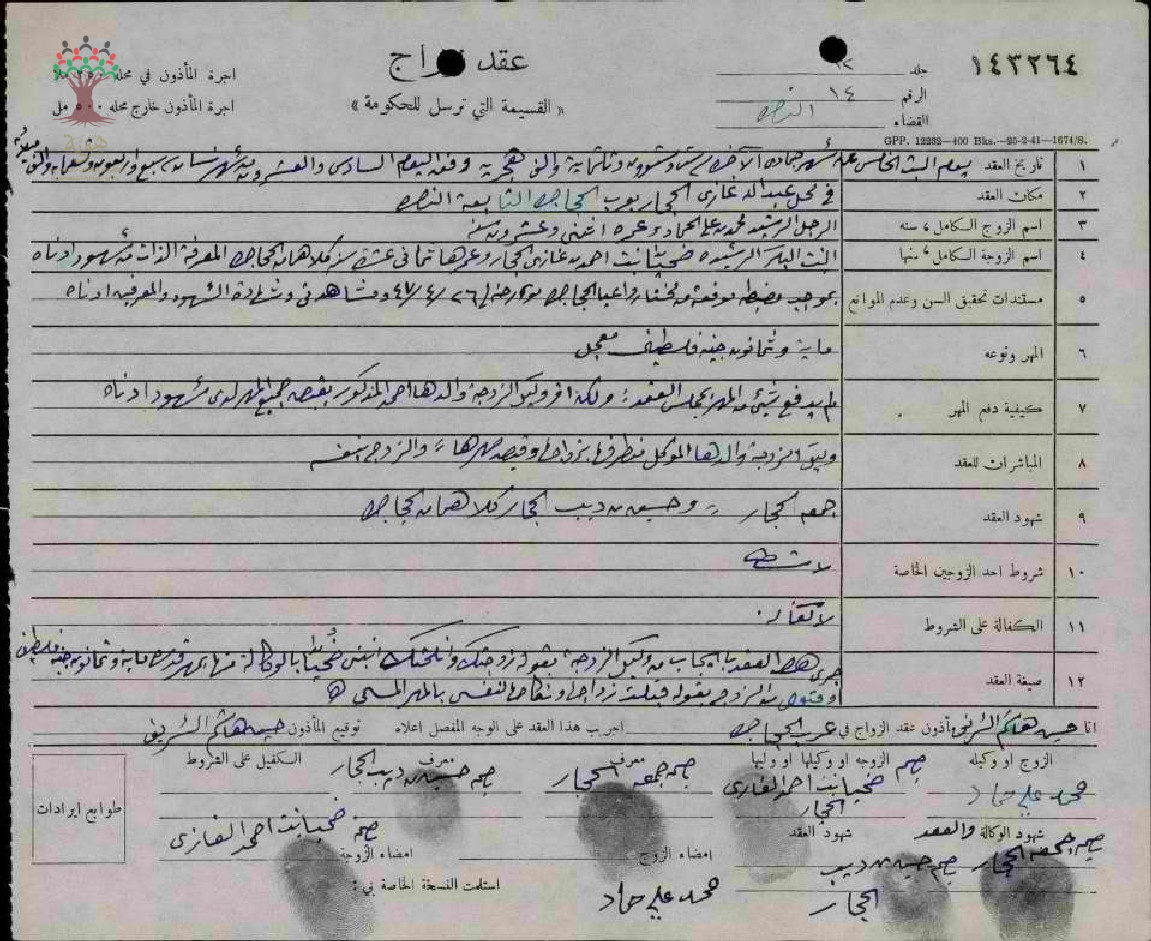 عقد زواج
« القسيمة التي ترسل للحكومة »
اجرة المأذون في محله ٢٥٠ ملا
اجرة المأذون خارج محله ٥٠٠ مل
١٤٣٢٦٤
جلد
الرقم ١٤
القضاء
GPP. 12232—400 Bks.—25-2-41—1674/S.
١ تاريخ العقد يوم السبت الخامس من شهر جمادى الآخر سنة ست وستين وثلثماية والف هجرية وفق اليوم السادس والعشرون من شهر نيسان سنة سبع واربعون وتسعماية والف
٢ مكان العقد في محل عبدالله غازي الحجار بعرب
٣ اسم الزوج الكامل، سنه الرجل الرشيد محمد بن علي الحماد وعمره اثنى وعشرون سنة
٤ اسم الزوجة الكامل، سنها البنت البكر الرشيده ضحيا بنت احمد بن غازي الحجار وعمرها ثماني عشرة سنة كلاهما من المعرفة الذات من شهود ادناه
٥ مستندات تحقيق السن وعدم الموانع بموجب مضبطه موقعة من مختار واعيا مؤرخة في ٢٦/٤/٤٧ ومشاهدتي وشهادة الشهود والمعرفين ادناه
٦ المهر ونوعه ماية وثمانون جنيه فلسطيني معجل
٧ كيفية دفع المهر لم يدفع شيئ من المهر بمجلس العقد ولكن اقر وكيل الزوجة والدها احمد المذكور بقبضه جميع المهر لدى شهود ادناه
٨ المباشران للعقد وكيل الزوجة والدها الموكل من طرفها بزواجها وقبض مهرها والزوج بنفسه
٩ شهود العقد جمعه الحجار وحسين بن ديب الحجار كلاهما من
١٠ شروط احد الزوجين الخاصة لا شرط
١١ الكفالة على الشروط لا كفاله
١٢ صيغة العقد جرى هذا العقد بايجاب من وكيل الزوجة بقوله زوجتك وانكحتك ابنتي ضحيا بالوكالة عنها بمهر قدره ماية وثمانون جنيه فلسطيني
وقبول من الزوج بقوله قبلت زواجها ونكاحها لنفسي بالمهر المسمى
انا حسين هاشم الشريف مأذون عقد الزواج في عرب اجريت هذا العقد على الوجه المفصل اعلاه توقيع المأذون حسين هاشم الشريف
الزوج او وكيله
الزوجه او وكيلها او وليها
معرف
معرف
الكفيل على الشروط
محمد علي حماد
بصم ضحيا بنت احمد الغازي الحجار
بصم جمعه الحجار
بصم حسين بن ديب الحجار
طوابع ايرادات
شهود الوكالة والعقد
شهود العقد
بصم جمعه الحجار
بصم حسين بن ديب الحجار
امضاء الزوج
امضاء الزوجة
بصم ضحيا بنت احمد الغازي
استلمت النسخة الخاصة بي :
محمد علي حماد